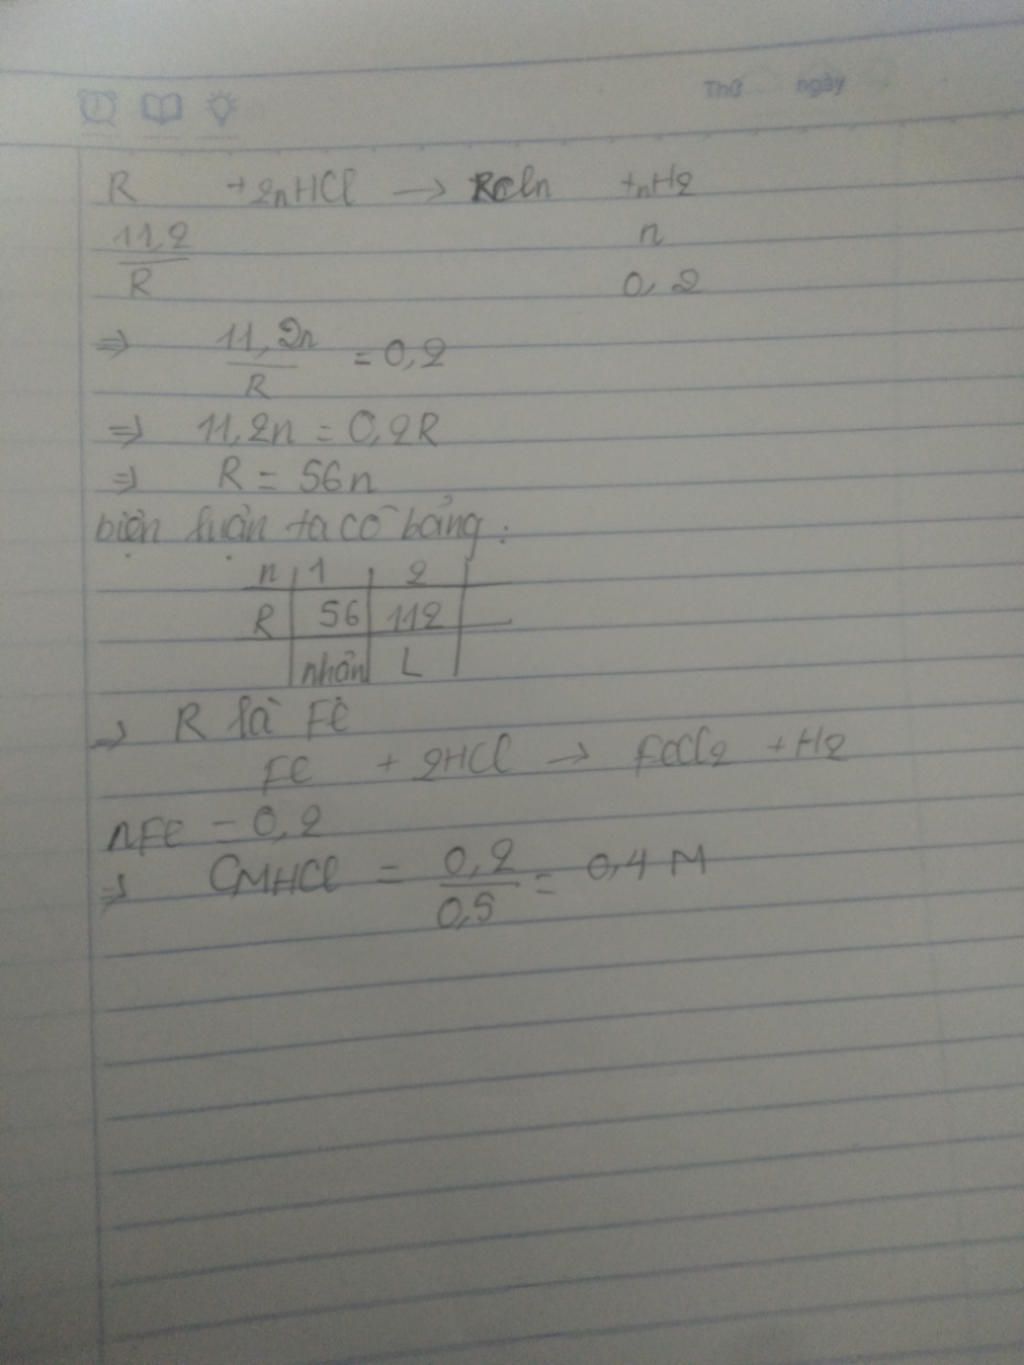 Thứ ngày
R + 2nHCl → RCln + nH2
11,2/R n
0,2
⇒ 11,2n/R = 0,2
⇒ 11,2n = 0,2R
⇒ R = 56n
biện luận ta có bảng:
n 1 2
R 56 112
nhận L
→ R là Fe
Fe + 2HCl → FeCl2 + H2
nFe = 0,2
⇒ CMHCl = 0,2/0,5 = 0,4 M